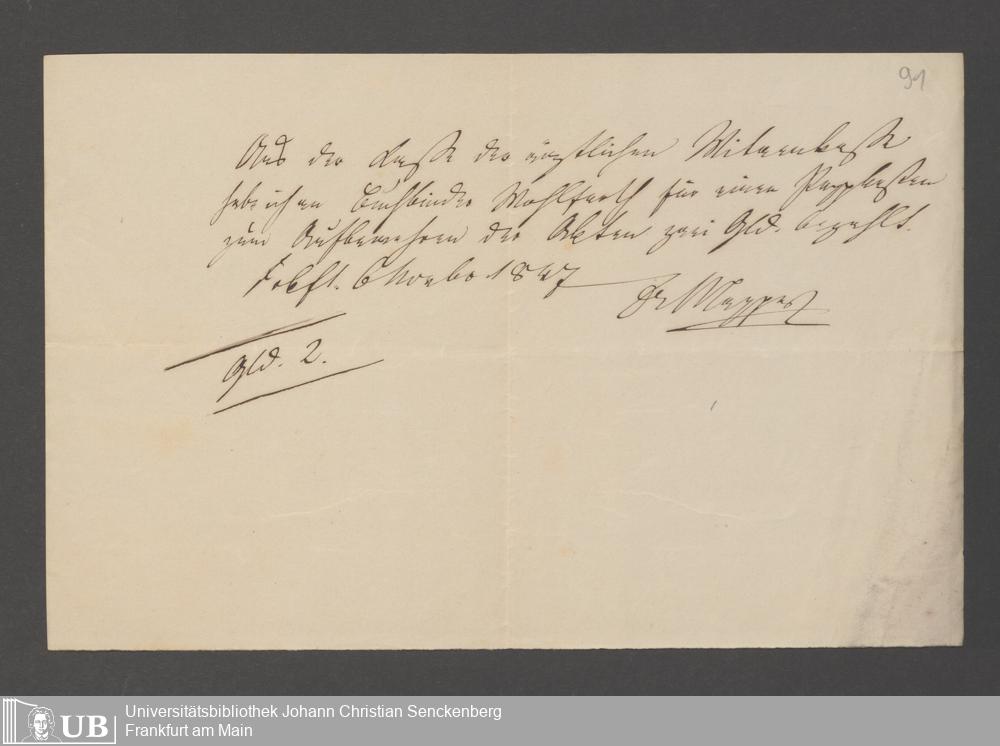 91
Aus der Casse der ärztlichen Witwenkasse
habe ich an Buchbinder Wohlfarth für einen Pappkasten
zum Aufbewahren der Akten zwei Gld. bezahlt.
1847
Dr Mappes
Gld. 2.
UB
Universitätsbibliothek Johann Christian Senckenberg
Frankfurt am Main